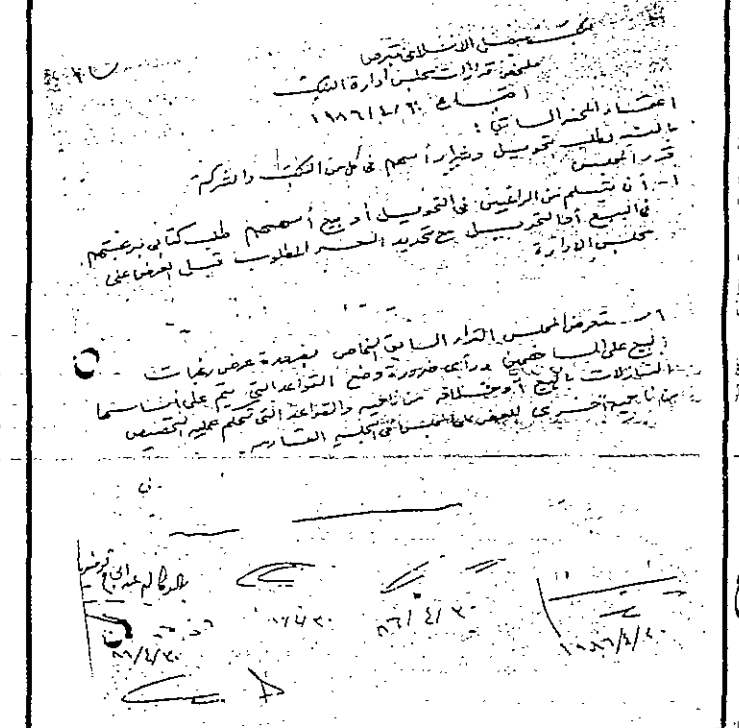 بنك فيصل الاسلامى بقبرص
ملحق قرارات مجلس ادارة البنك
اجتماع ١٩٨٦/٤/٣٠
اعتماد المحضر السابق :
بالنسبة لطلب تحويل وشراء أسهم فى كل من البنك والشركة
قرر المجلس
١- أن يتسلم من الراغبين فى التحويل أو بيع أسهمهم طلب كتابى برغبتهم
فى البيع أو التحويل مع تحديد السعر المطلوب قبل العرض على
مجلس الادارة
استعرض المجلس القرار السابق الخاص بضرورة عرض رغبات
البيع على المساهمين ورأى ضرورة وضع القواعد التى يتم على أساسها
التنازلات بالبيع أو خلافه من ناحية والقواعد التى تحكم عملية التخصيص
من ناحية أخرى للعرض على المجلس فى الجلسة القادمة
٨٦/٤/٣٠
٨٦/٤/٣٠
١٩٨٦/٤/٣٠